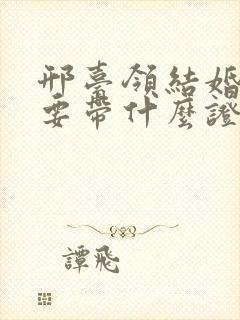 邢臺領結婚
要帶什麼證
譚飛